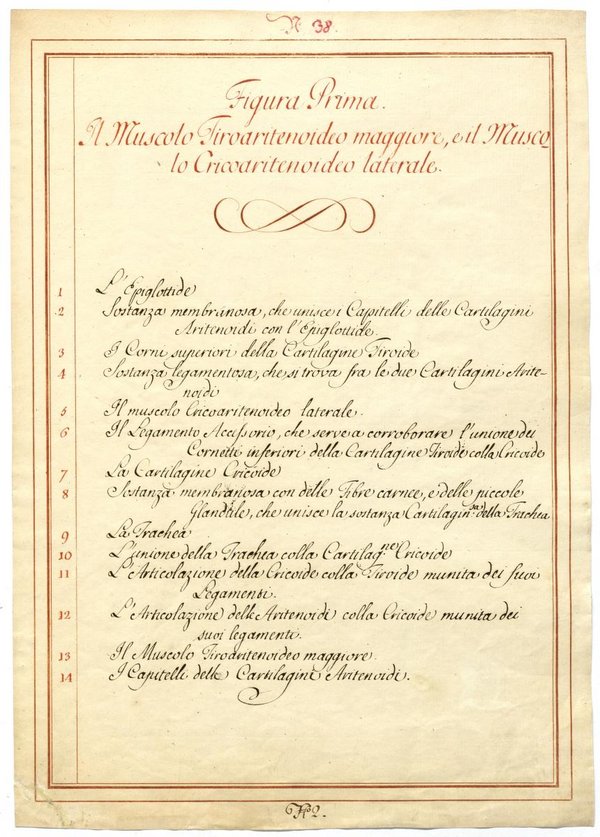 N. 38.
Figura Prima.
Il Muscolo Tiroaritenoideo maggiore, e il Musco
lo Cricoaritenoideo laterale.
1 L'Epiglottide
2 Sostanza membranosa, che unisce i Capitelli delle Cartilagini
Aritenoidi con l'Epiglottide.
3 I Corni superiori della Cartilagine Tiroide
4 Sostanza legamentosa, che si trova fra le due Cartilagini Arite-
noidi
5 Il muscolo Cricoaritenoideo laterale.
6 Il Legamento Accessorio, che serve a corroborare l'unione dei
Cornetti inferiori della Cartilagine Tiroide colla Cricoide
7 La Cartilagine Cricoide
8 Sostanza membranosa con delle Fibre carnee, e delle piccole
Glandule, che unisce la sostanza Cartilagin.sa della Trachea
9 La Trachea
10 L'unione della Trachea colla Cartilag.ne Cricoide
11 L'Articolazione della Cricoide colla Tiroide munita dei suoi
Legamenti.
12 L'Articolazione delle Aritenoidi colla Cricoide munita dei
suoi legamenti.
13 Il Muscolo Tiroaritenoideo maggiore.
14 I Capitelli delle Cartilagini Aritenoidi.
2.